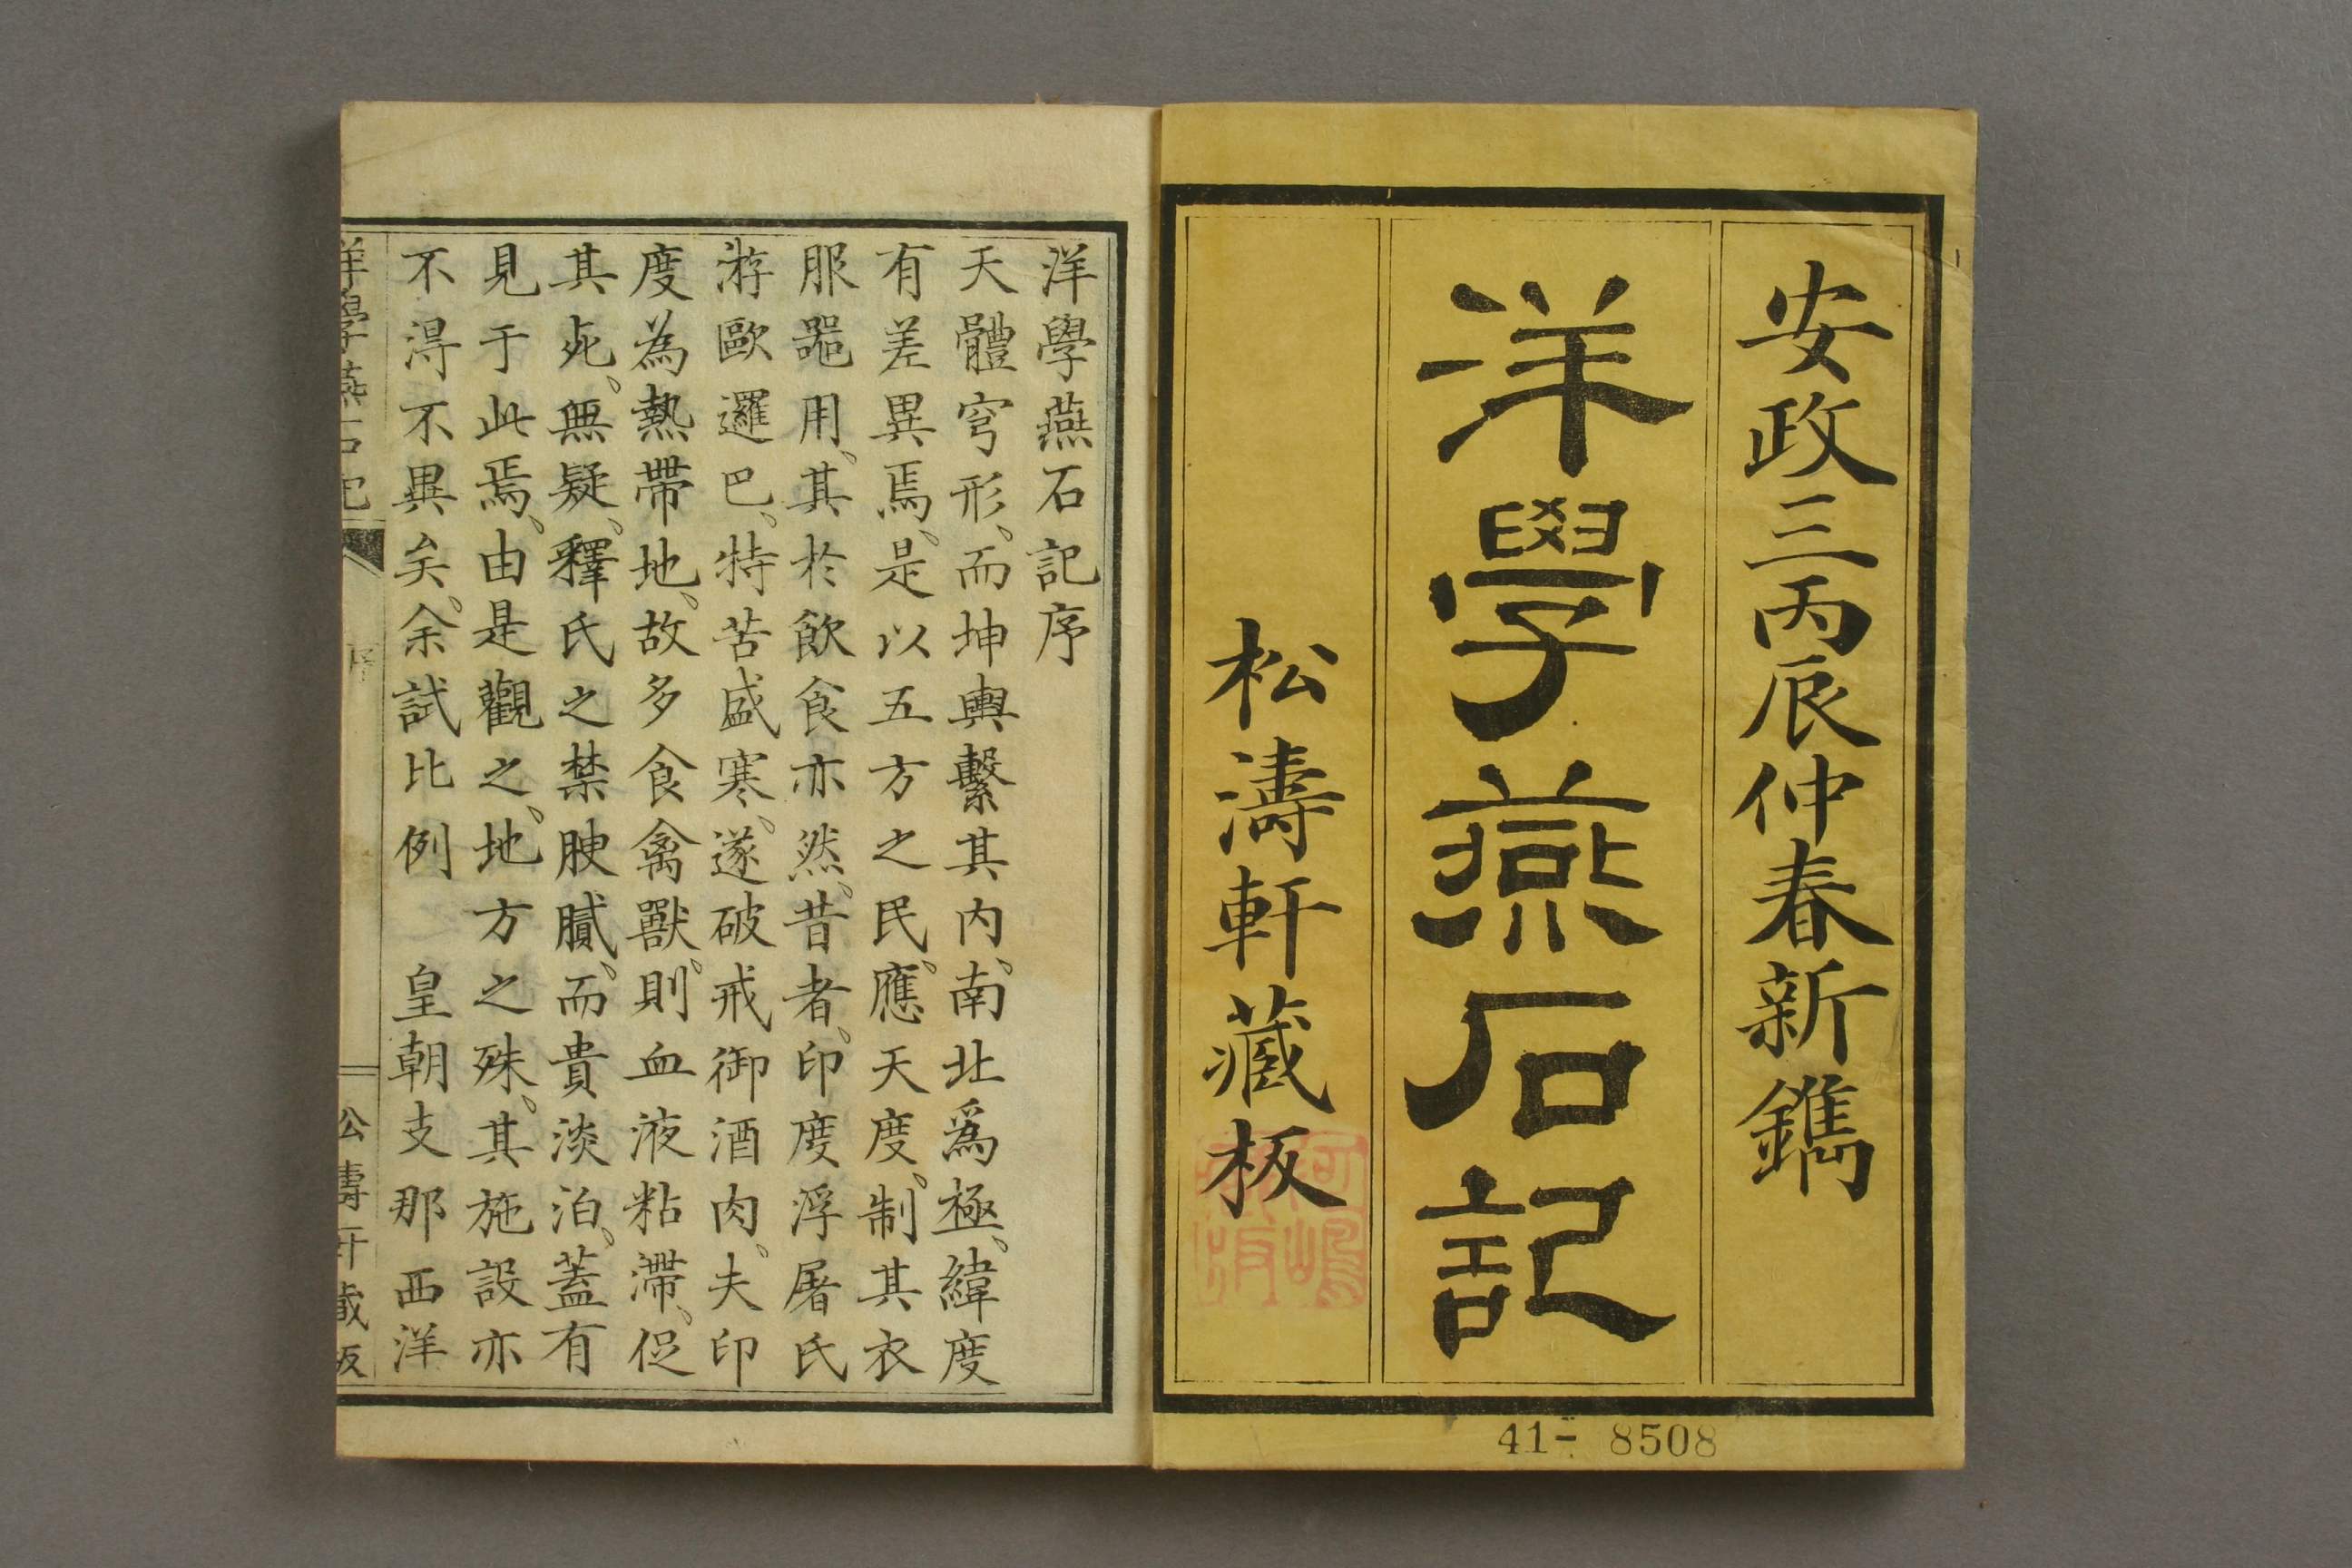 安政三丙辰仲春新鐫
洋學燕石記
松濤軒藏板
41- 8508
洋學燕石記序
天體穹形、而坤輿繫其内、南北爲極、緯度
有差異焉、是以五方之民、應天度、制其衣
服噐用、其於飲食亦然、昔者、印度浮屠氏
游歐邏巴、特苦盛寒、遂破戒御酒肉、夫印
度為熱帶地、故多食禽獸、則血液粘滯、促
其死、無疑、釋氏之禁腴膩、而貴淡泊、蓋有
見于此焉、由是觀之、地方之殊、其施設亦
不得不異矣、余試比例　皇朝支那西洋
洋學燕石記
序
松濤軒藏板